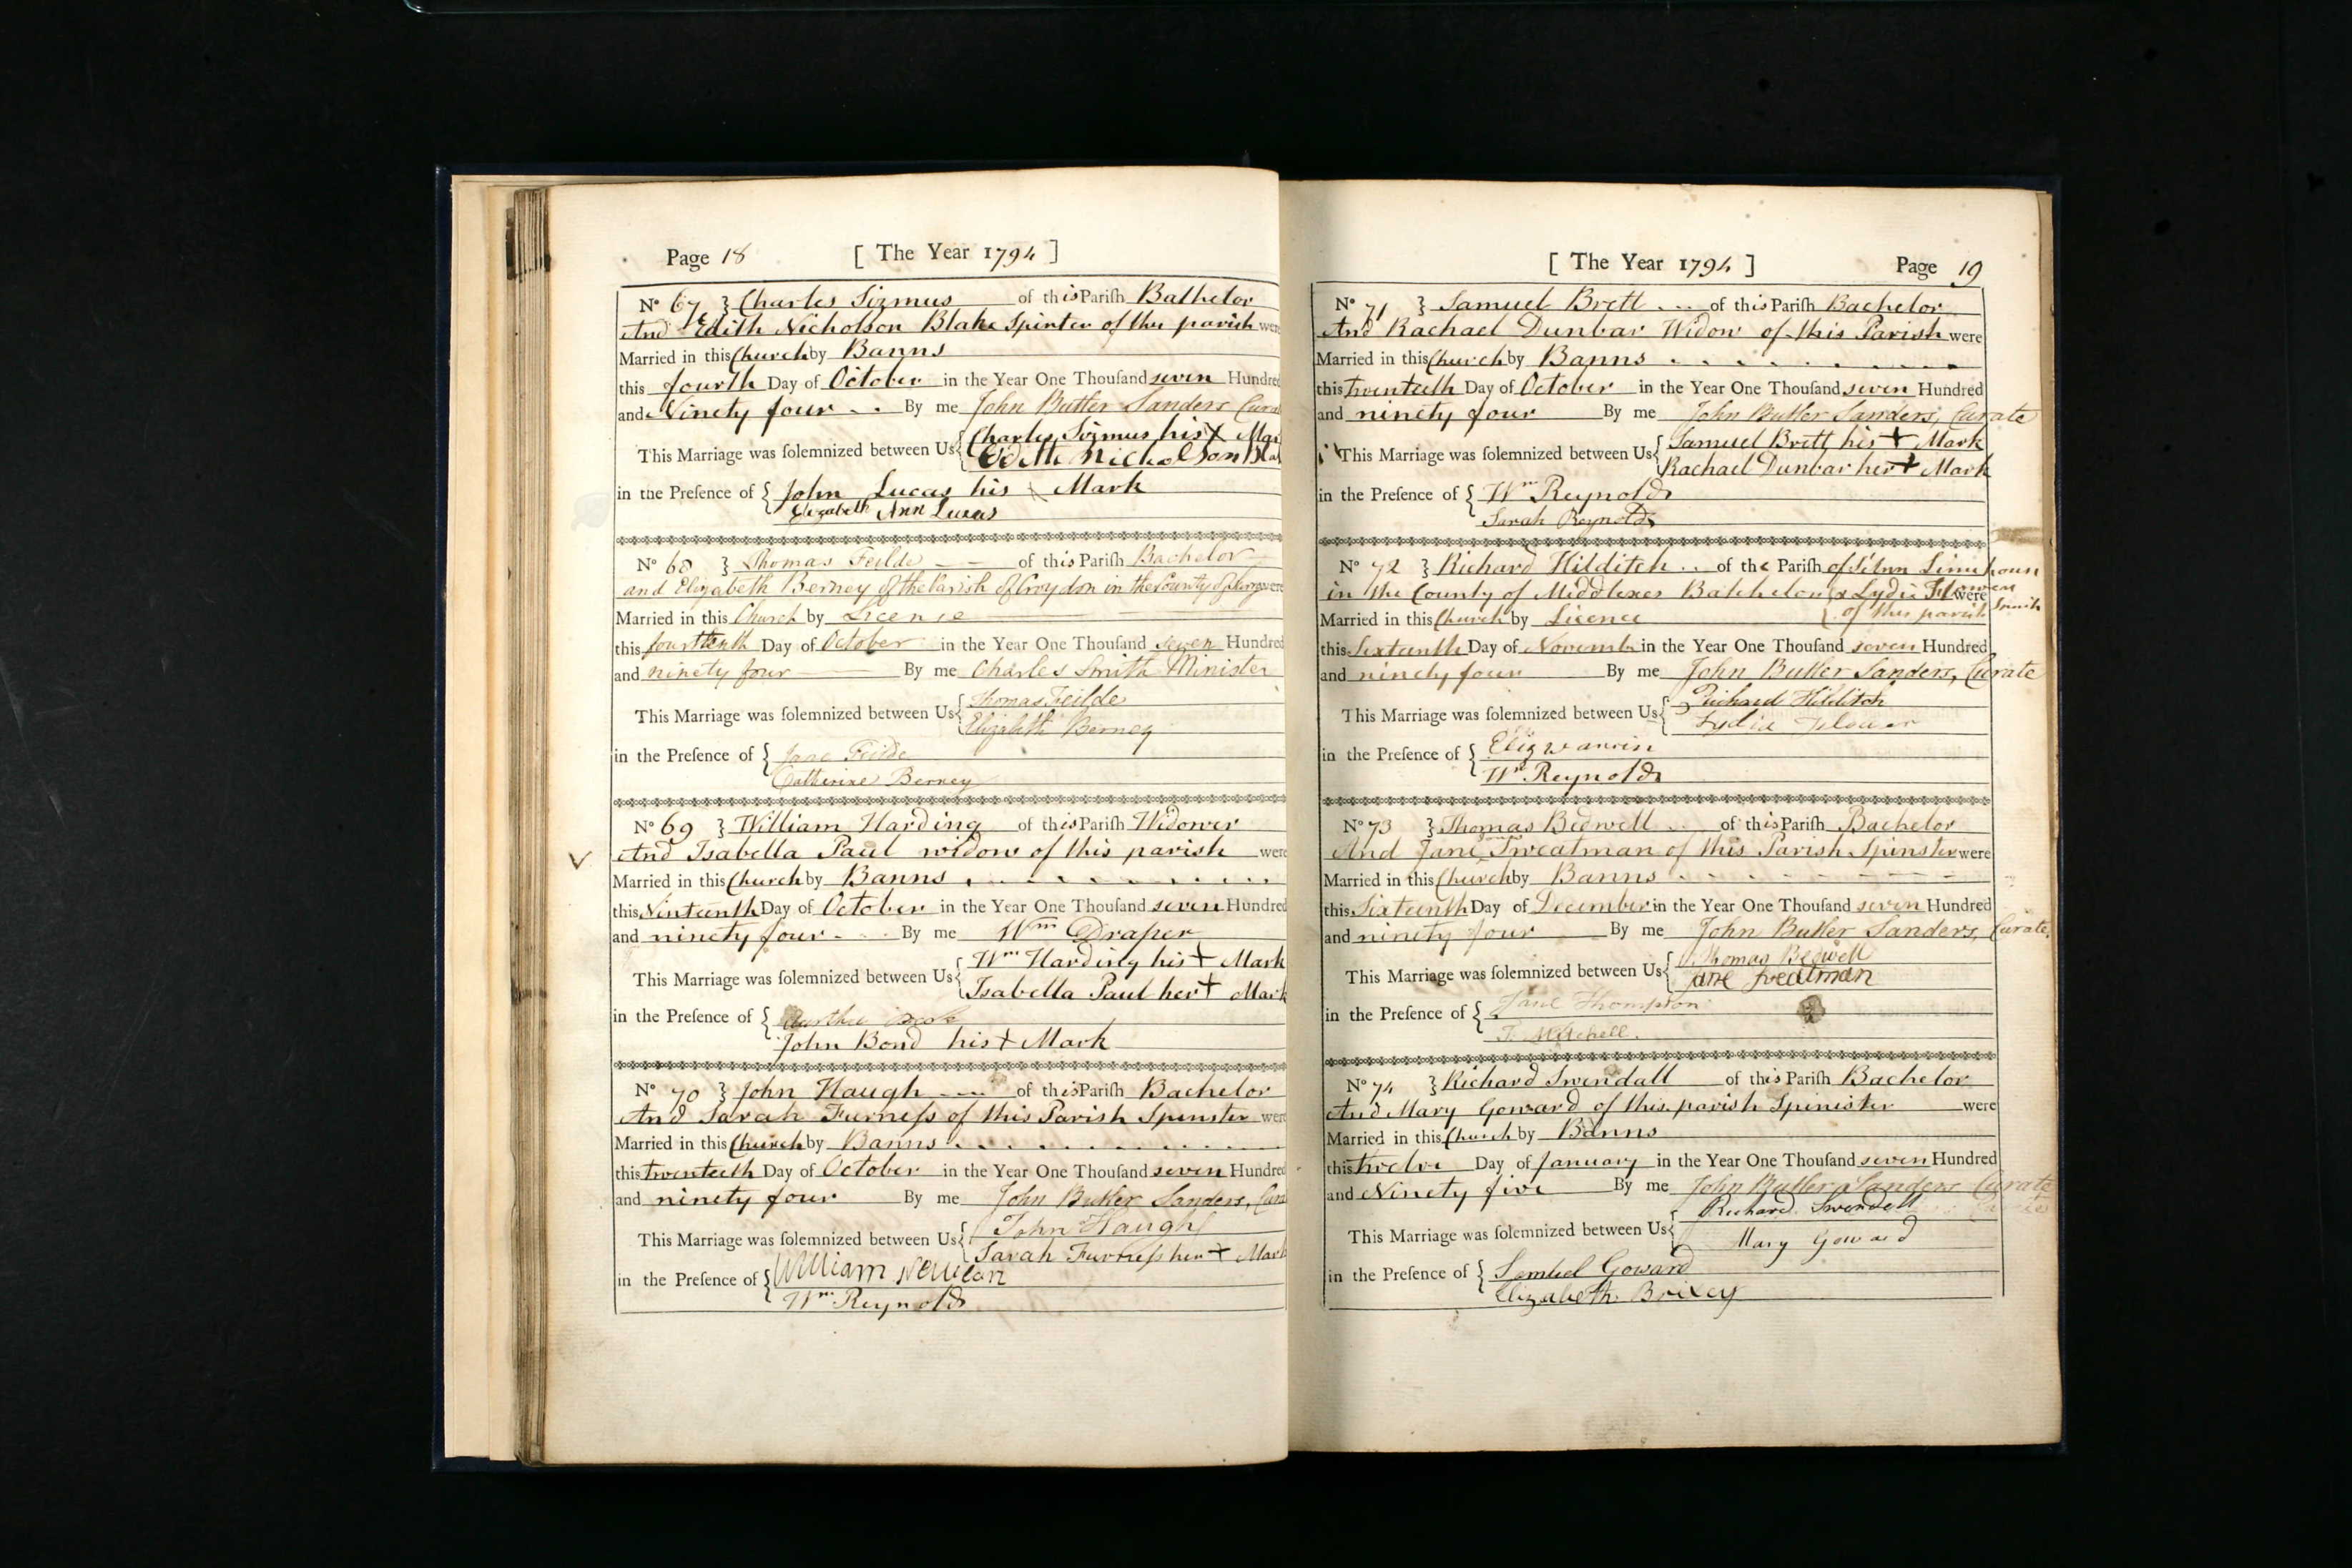 Page 18 [ The Year 1794 ]
No 67 } Charles Sizmus of this Parish Bathelor
And Edith Nicholson Blake Spinter of this parish were
Married in this Church by Banns
this fourth Day of October in the Year One Thousand seven Hundred
and Ninety four By me John Butler Sanders Cura
This Marriage was solemnized between Us { Charles Sizmus his X Mar
Edith Nicholson Bla
in the Presence of { John Lucas his Mark
Elizabeth Ann Lucas
No 68 } Thomas Feilde of this Parish Bachelor
and Elizabeth Berney of the Parish of Croydon in the County of were
Married in this Church by License
this fourteenth Day of October in the Year One Thousand seven Hundred
and ninety four By me Charles Smith Minister
This Marriage was solemnized between Us { Thomas Feilde
Elizabeth Berney
in the Presence of { Jane Feilde
Catherine Berney
No 69 } William Harding of this Parish Widower
And Isabella Paul widow of this parish were
Married in this Church by Banns
this Ninteenth Day of October in the Year One Thousand seven Hundred
and ninety four By me Wm Draper
This Marriage was solemnized between Us { Wm Harding his + Mark
Isabella Paul her + Mark
in the Presence of {
John Bond his + Mark
No 70 } John Haugh of this Parish Bachelor
And Sarah Furness of this Parish Spinster were
Married in this Church by Banns
this twenteeth Day of October in the Year One Thousand seven Hundred
and ninety four By me John Butler Sanders, Cura
This Marriage was solemnized between Us { John Haugh
Sarah Furness her + Mark
in the Presence of { William
Wm Reynolds
[ The Year 1794 ] Page 19
No 71 } Samuel Brett of this Parish Bachelor
And Rachael Dunbar Widow of this Parish were
Married in this Church by Banns
this twenteeth Day of October in the Year One Thousand seven Hundred
and ninety four By me John Butler Sanders, Curate
This Marriage was solemnized between Us { Samuel Brett his + Mark
Rachael Dunbar her + Mark
in the Presence of { Wm Reynolds
Sarah Reynolds
No 72 } Richard Hilditch of the Parish of
in the County of Middlesex Batchelor & Lydia Flower were
Married in this Church by Licence of this parish
this Sixteenth Day of Novemb in the Year One Thousand seven Hundred
and ninety four By me John Butler Sanders, Curate
This Marriage was solemnized between Us { Richard Hilditch
Lydia Flower
in the Presence of { Eliz
Wm Reynolds
No 73 } Thomas Bedwell of this Parish Bachelor
And Jane Sweatman of this Parish Spinster were
Married in this Church by Banns
this Sixteenth Day of December in the Year One Thousand seven Hundred
and ninety four By me John Butler Sanders, Curate
This Marriage was solemnized between Us { Thomas Bedwell
Jane Sweatman
in the Presence of { Jane Thompson
T. Mitchell
No 74 } Richard Swendall of this Parish Bachelor
And Mary Goward of this parish Spinister were
Married in this Church by Banns
this twelve Day of January in the Year One Thousand seven Hundred
and Ninety five By me John Butler Sanders Curate
This Marriage was solemnized between Us { Richard Swendell
Mary Goward
in the Presence of { Goward
Elizabeth Brixey